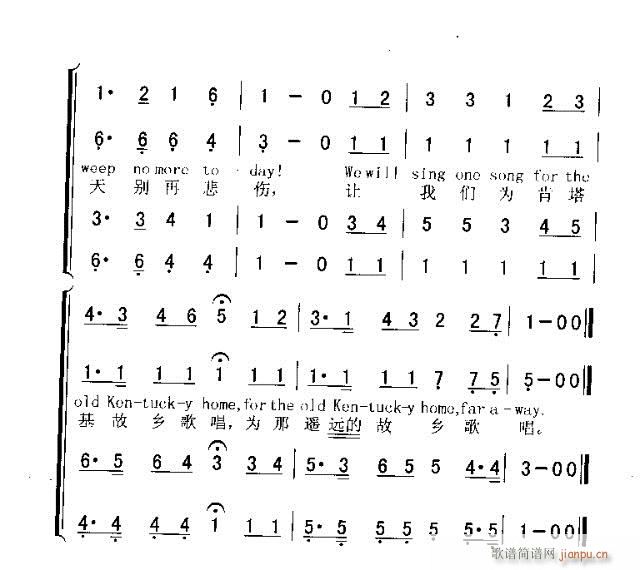 1· 2 1 6 | 1 - 0 1 2 | 3 3 1 2 3
6· 6 6 4 | 3 - 0 1 1 | 1 1 1 1 1
weep no more to - day! We will sing one song for the
天 别 再 悲 伤, 让 我 们 为 肯 塔
3· 3 4 1 | 1 - 0 3 4 | 5 5 3 4 5
6· 6 4 4 | 1 - 0 1 1 | 1 1 1 1 1
4· 3 4 6 5 1 2 | 3· 1 4 3 2 2 7 | 1-00
1· 1 1 1 1 1 1 | 1· 1 1 1 7 7 5 | 5-00
old Ken-tuck-y home, for the old Ken-tuck-y home, far a-way.
基 故 乡 歌 唱, 为 那 遥 远的 故 乡 歌 唱。
6· 5 4 4 3 3 4 | 5· 3 6 5 5 4·4 | 3-00
4· 4 4 4 1 1 1 | 5· 5 5 5 5 5·5 | 1-00
歌谱简谱网
jianpu.cn